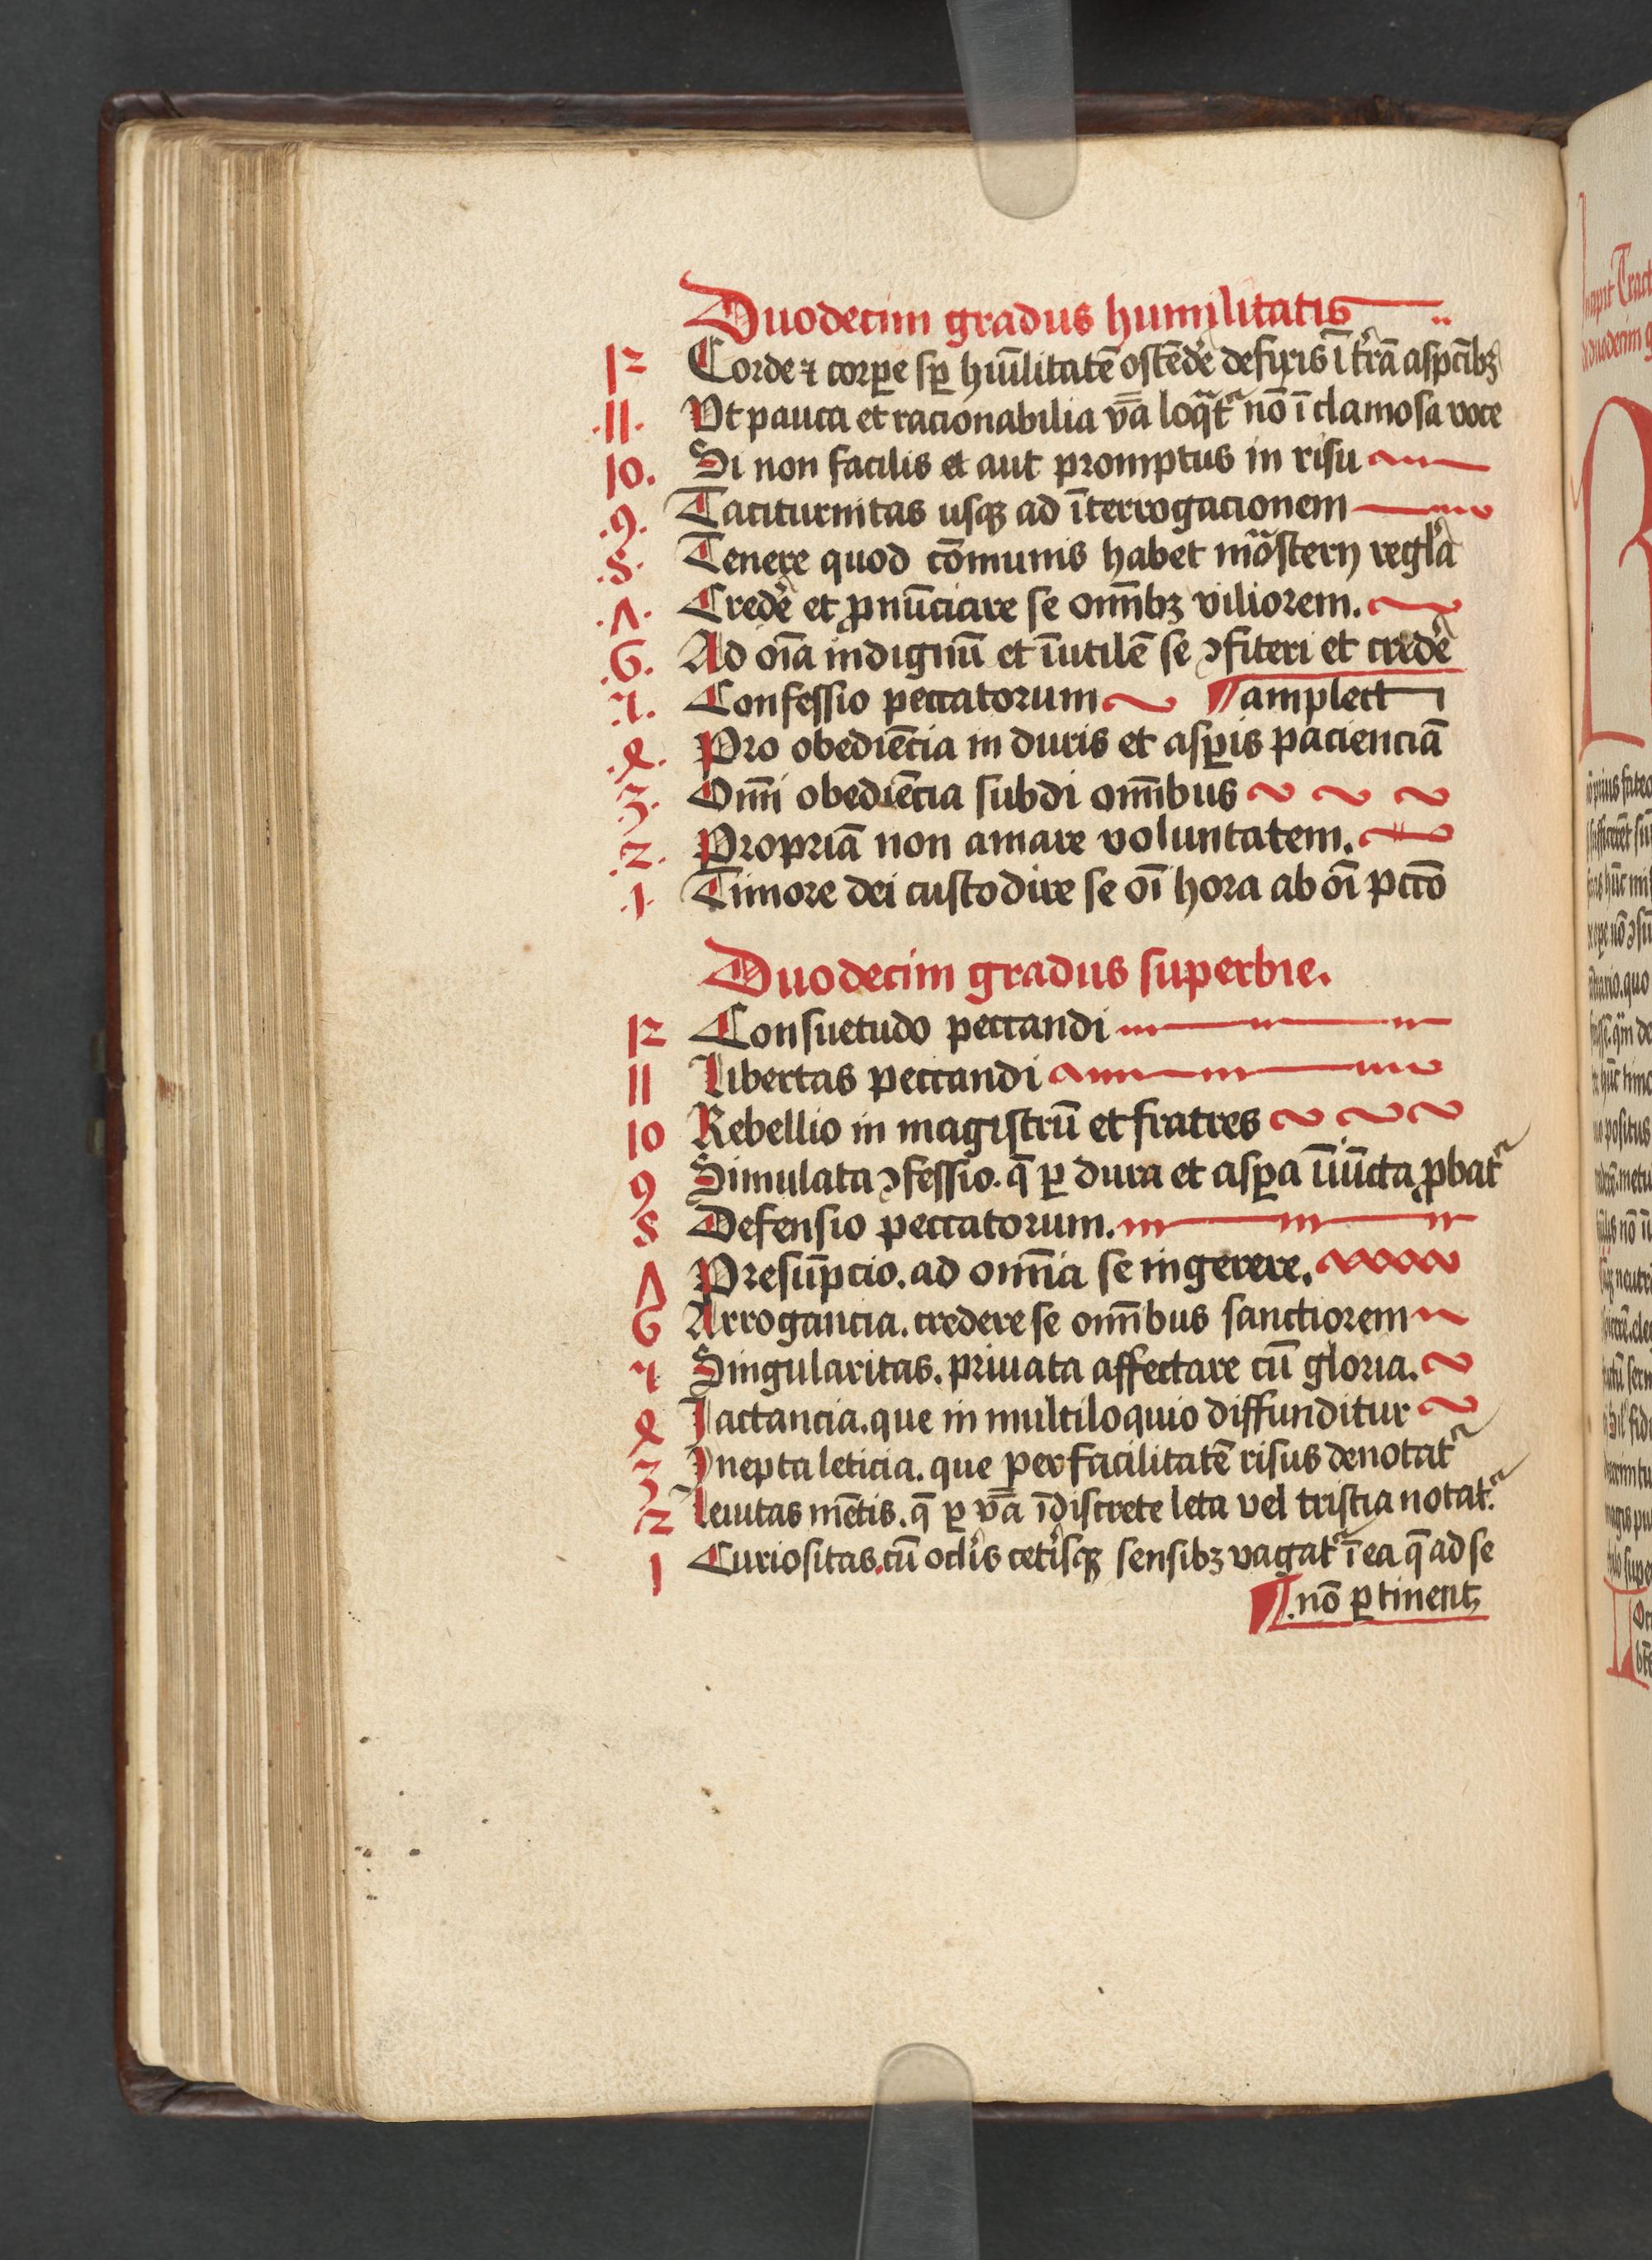 Duodecim gradus humilitatis
12 Corde ⁊ corꝑe sꝑ hūilitatē ostēdē defixis ī trā aspcibꝫ
.11. Vt pauca et racionabilia v̄a loqat nō ī clamosa voce
10. Si non facilis et aut promptus in risu
.9. Taciturnitas usqꝫ ad īterrogacionem
.8. Tenere quod cōmunis habet mōstern regla
.7. Credē et ꝓnūciare se om̄ibꝫ viliorem.
.6. Ad oīa indignū et īutilē se ꝯfiteri et credē
.5. Confessio peccatorum ¶ amplect
.4. Pro obediēcia in duris et asꝑis pacienciā
.3. Om̄i obediēcia subdi om̄ibus
.2. Propriā non amare voluntatem.
.1. Timore dei custodire se oī hora ab oī pctō
Duodecim gradus superbie.
12 Consuetudo peccandi
11 Libertas peccandi
10 Rebellio in magistrū et fratres
9 Simulata ꝯfessio. q̄ ꝑ dura et asꝑa īiūcta ꝓbat
8 Defensio peccatorum.
7 Presūpcio. ad om̄ia se ingerere.
6 Arrogancia. credere se om̄ibus sanctiorem
5 Singularitas. priuata affectare cū gloria.
4 Jactancia. que in multiloquio diffunditur
3 Inepta leticia. que per facilitatē risus denotat
2 leuitas mētis. q̄ ꝑ v̄a īdiscrete leta vel tristia notat.
1 Curiositas. cū oclis cetisqꝫ sensibꝫ vagat ī ea q̄ ad se
¶ .nō ꝑtinent